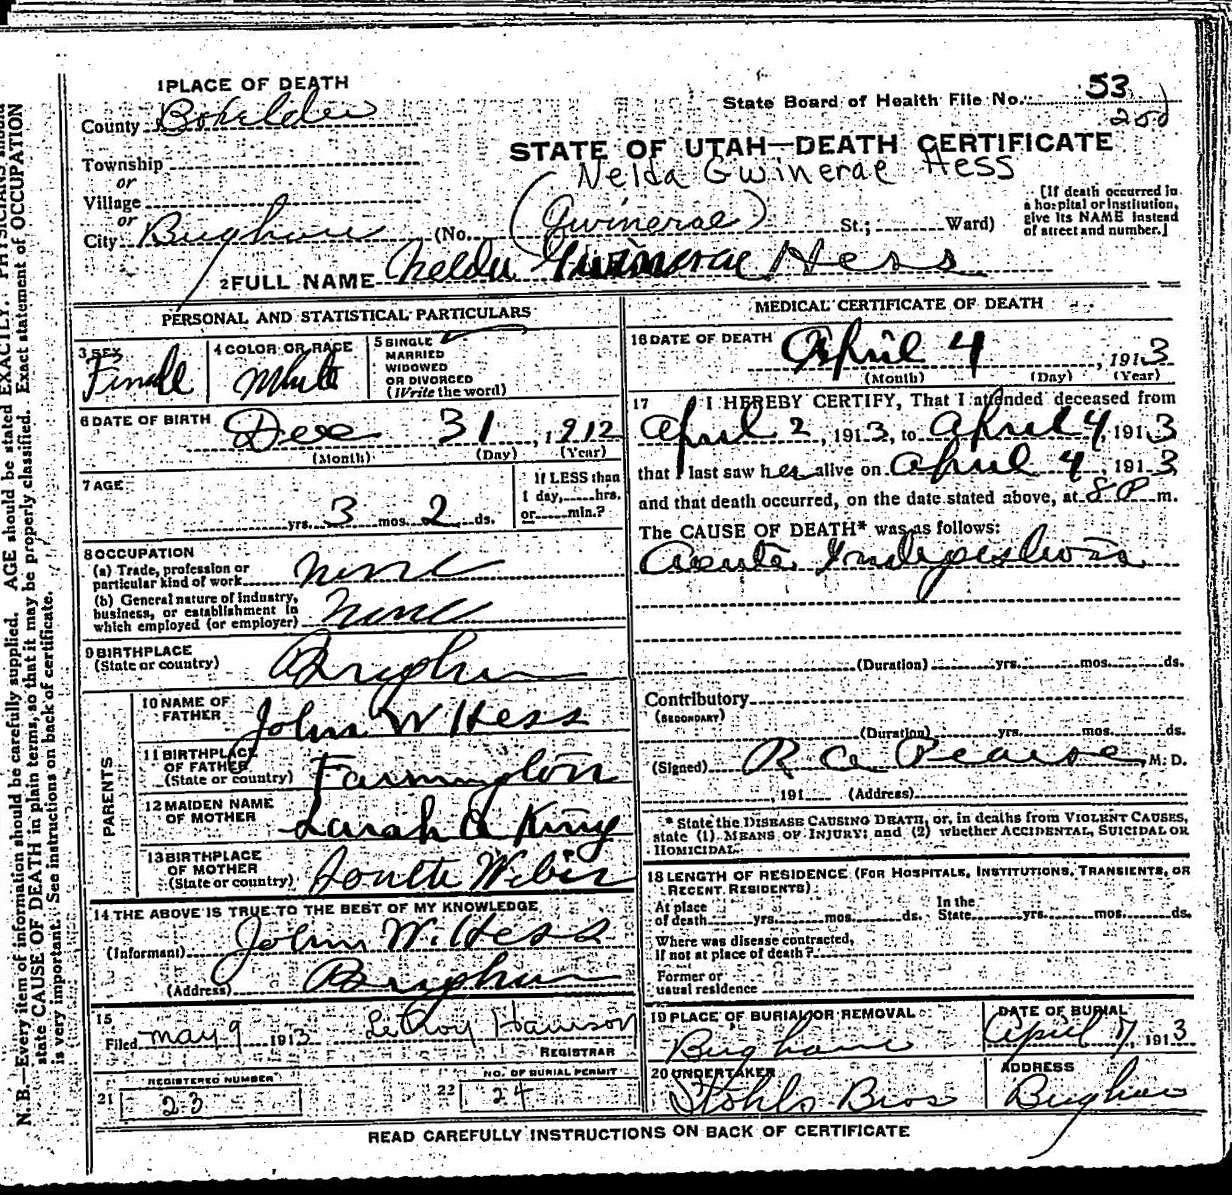 1 PLACE OF DEATH
County Boxelder
Township
or
Village
or
City Brigham
State Board of Health File No. 53
200
STATE OF UTAH—DEATH CERTIFICATE
Nelda Gwinerae Hess
(No. (Gwinerae) St.; Ward)
[If death occurred in
a hospital or institution,
give its NAME instead
of street and number.]
2 FULL NAME Nelda Gwinerae Hess
PERSONAL AND STATISTICAL PARTICULARS
3 SEX
Female
4 COLOR OR RACE
White
5 SINGLE
MARRIED
WIDOWED
OR DIVORCED
(Write the word)
6 DATE OF BIRTH
Dec 31, 1912
(Month) (Day) (Year)
7 AGE
yrs. 3 mos. 2 ds.
If LESS than
1 day, hrs.
or min.?
8 OCCUPATION
(a) Trade, profession or
particular kind of work none
(b) General nature of industry,
business, or establishment in
which employed (or employer) none
9 BIRTHPLACE
(State or country) Brigham
PARENTS
10 NAME OF
FATHER John W Hess
11 BIRTHPLACE
OF FATHER
(State or country) Farmington
12 MAIDEN NAME
OF MOTHER Sarah A King
13 BIRTHPLACE
OF MOTHER
(State or country) South Weber
14 THE ABOVE IS TRUE TO THE BEST OF MY KNOWLEDGE
(Informant) John W. Hess
(Address) Brigham
15
Filed May 9 1913 LeRoy Harrison
REGISTRAR
REGISTERED NUMBER
21 23
NO. OF BURIAL PERMIT
22 24
MEDICAL CERTIFICATE OF DEATH
16 DATE OF DEATH April 4, 1913
(Month) (Day) (Year)
17 I HEREBY CERTIFY, That I attended deceased from
April 2, 1913, to April 4, 1913
that I last saw her alive on April 4, 1913
and that death occurred, on the date stated above, at 8 P m.
The CAUSE OF DEATH* was as follows:
Acute Indigestion
(Duration) yrs. mos. ds.
Contributory
(SECONDARY)
(Duration) yrs. mos. ds.
(Signed) R A Pearse, M. D.
, 191 (Address)
* State the DISEASE CAUSING DEATH, or, in deaths from VIOLENT CAUSES,
state (1) MEANS OF INJURY; and (2) whether ACCIDENTAL, SUICIDAL OR
HOMICIDAL.
18 LENGTH OF RESIDENCE (FOR HOSPITALS, INSTITUTIONS, TRANSIENTS, OR
RECENT RESIDENTS)
At place
of death yrs. mos. ds.
In the
State yrs. mos. ds.
Where was disease contracted,
if not at place of death?
Former or
usual residence
19 PLACE OF BURIAL OR REMOVAL
Brigham
DATE OF BURIAL
April 7, 1913
20 UNDERTAKER
Stohls Bros
ADDRESS
Brigham
READ CAREFULLY INSTRUCTIONS ON BACK OF CERTIFICATE
N. B.—Every item of information should be carefully supplied. AGE should be stated EXACTLY. PHYSICIANS should
state CAUSE OF DEATH in plain terms, so that it may be properly classified. Exact statement of OCCUPATION
is very important. See instructions on back of certificate.